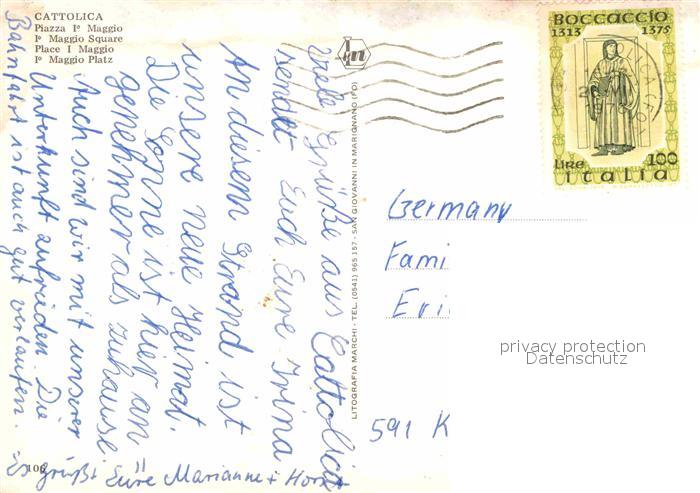 CATTOLICA
Piazza Iº Maggio
Iº Maggio Square
Place I Maggio
Iº Maggio Platz
BOCCACCIO
1313 1375
LIRE 100
italia
LITOGRAFIA MARCHI - TEL. (0541) 965 157 - SAN GIOVANNI IN MARIGNANO (FO)
Viele Grüße aus Cattolica
sendet Euch Eure Irina
An diesem Strand ist
unsere neue Heimat.
Die Sonne ist hier an
genehmer als zuhause
Auch sind wir mit unserer
Unterkunft zufrieden. Die
Bahnfahrt ist auch gut verlaufen.
Es grüßt Eure Marianne + Horst
106
Germany
Fami
Eri
591 K
privacy protection
Datenschutz